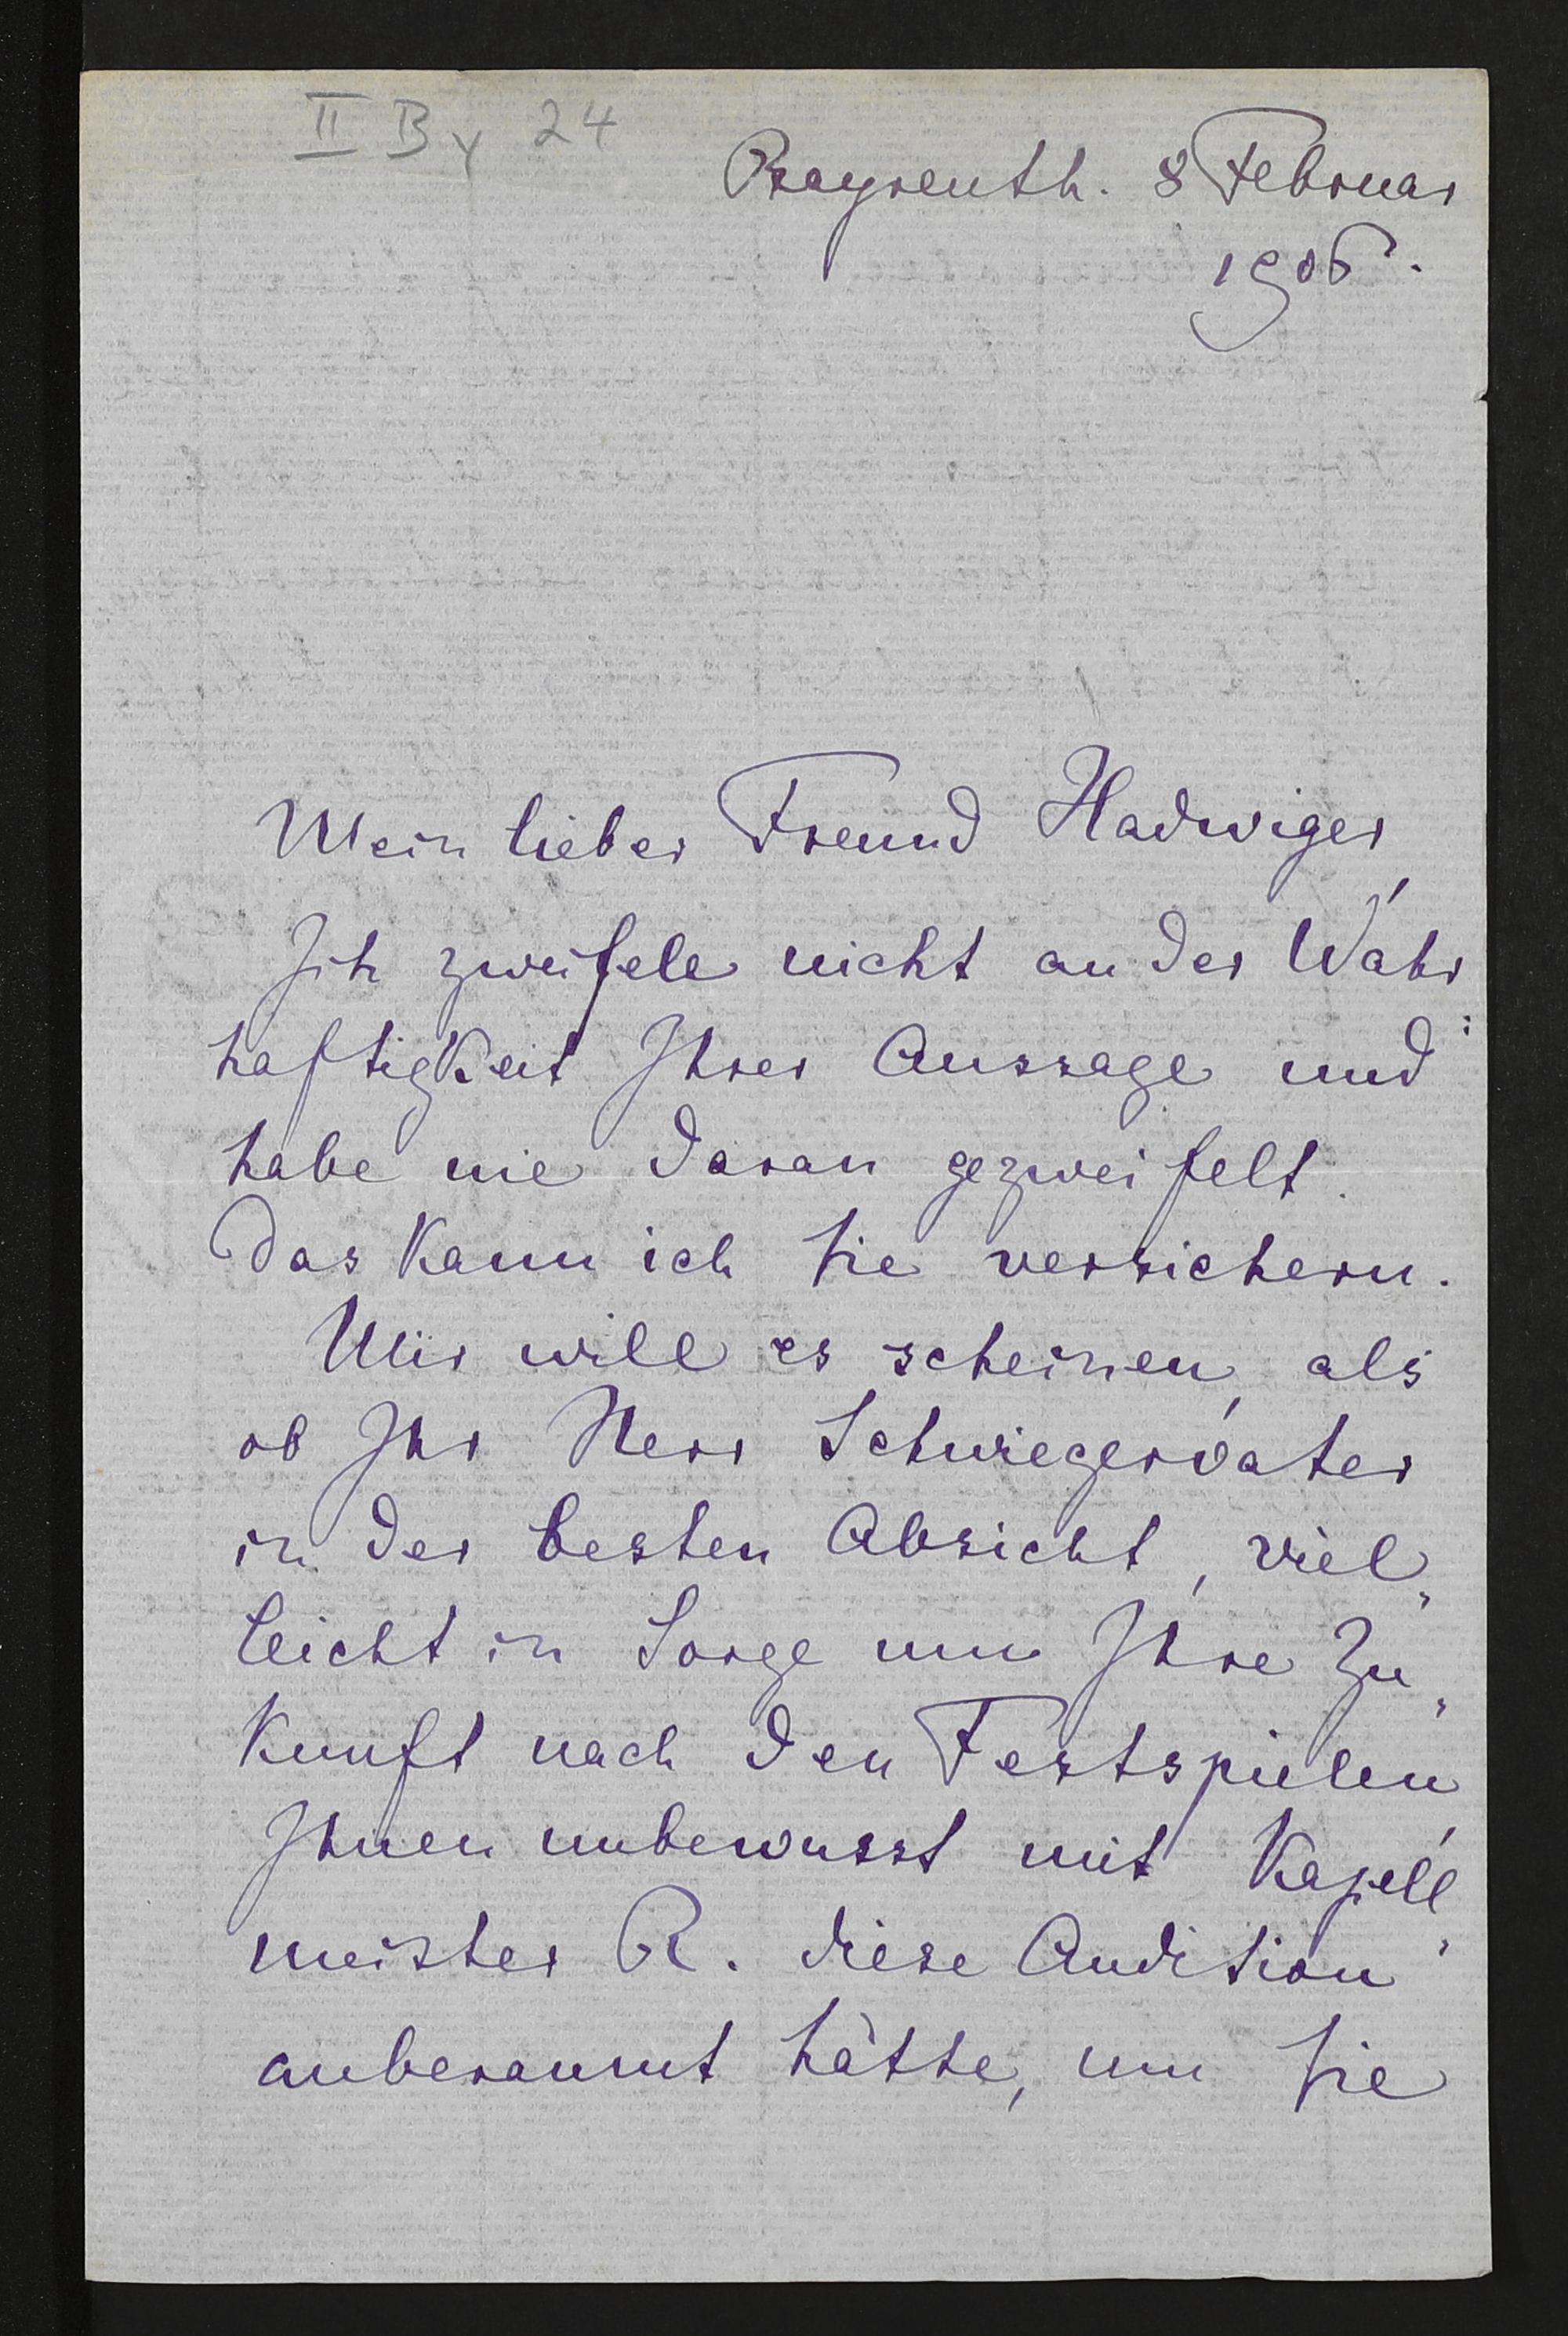 II By 24
Bayreuth. 8 Februar
1906.
Mein lieber Freund Hadwiger,
Ich zweifele nicht an der Wahr„
haftigkeit Ihrer Aussage und
habe nie daran gezweifelt.
Das kann ich Sie versichern.
Mir will es scheinen, als
ob Ihr Herr Schwiegervater
in der besten Absicht, viel„
leicht in Sorge um Ihre Zu„
kunft nach den Festspielen,
Ihnen unbewusst mit Kapell„
meister R. diese Audition
anberaumt hätte, um Sie